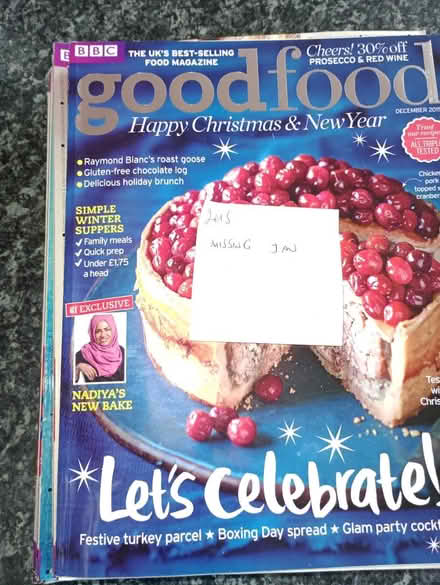 E
BBC
THE UK'S BEST-SELLING
FOOD MAGAZINE
Cheers! 30% off
PROSECCO & RED WINE
goodfood
DECEMBER 201
Happy Christmas & New Year
Trust
our recipes
ALL TRIPLE
TESTED
Raymond Blanc's roast goose
Gluten-free chocolate log
Delicious holiday brunch
Chicken
pork
topped
cranber
SIMPLE
WINTER
SUPPERS
✓ Family meals
✓ Quick prep
✓ Under £1.75
a head
2015
MISSING JAN
EXCLUSIVE
NADIYA'S
NEW BAKE
Tes
wi
Chris
Let's Celebrate!
Festive turkey parcel ★ Boxing Day spread ★ Glam party cockt